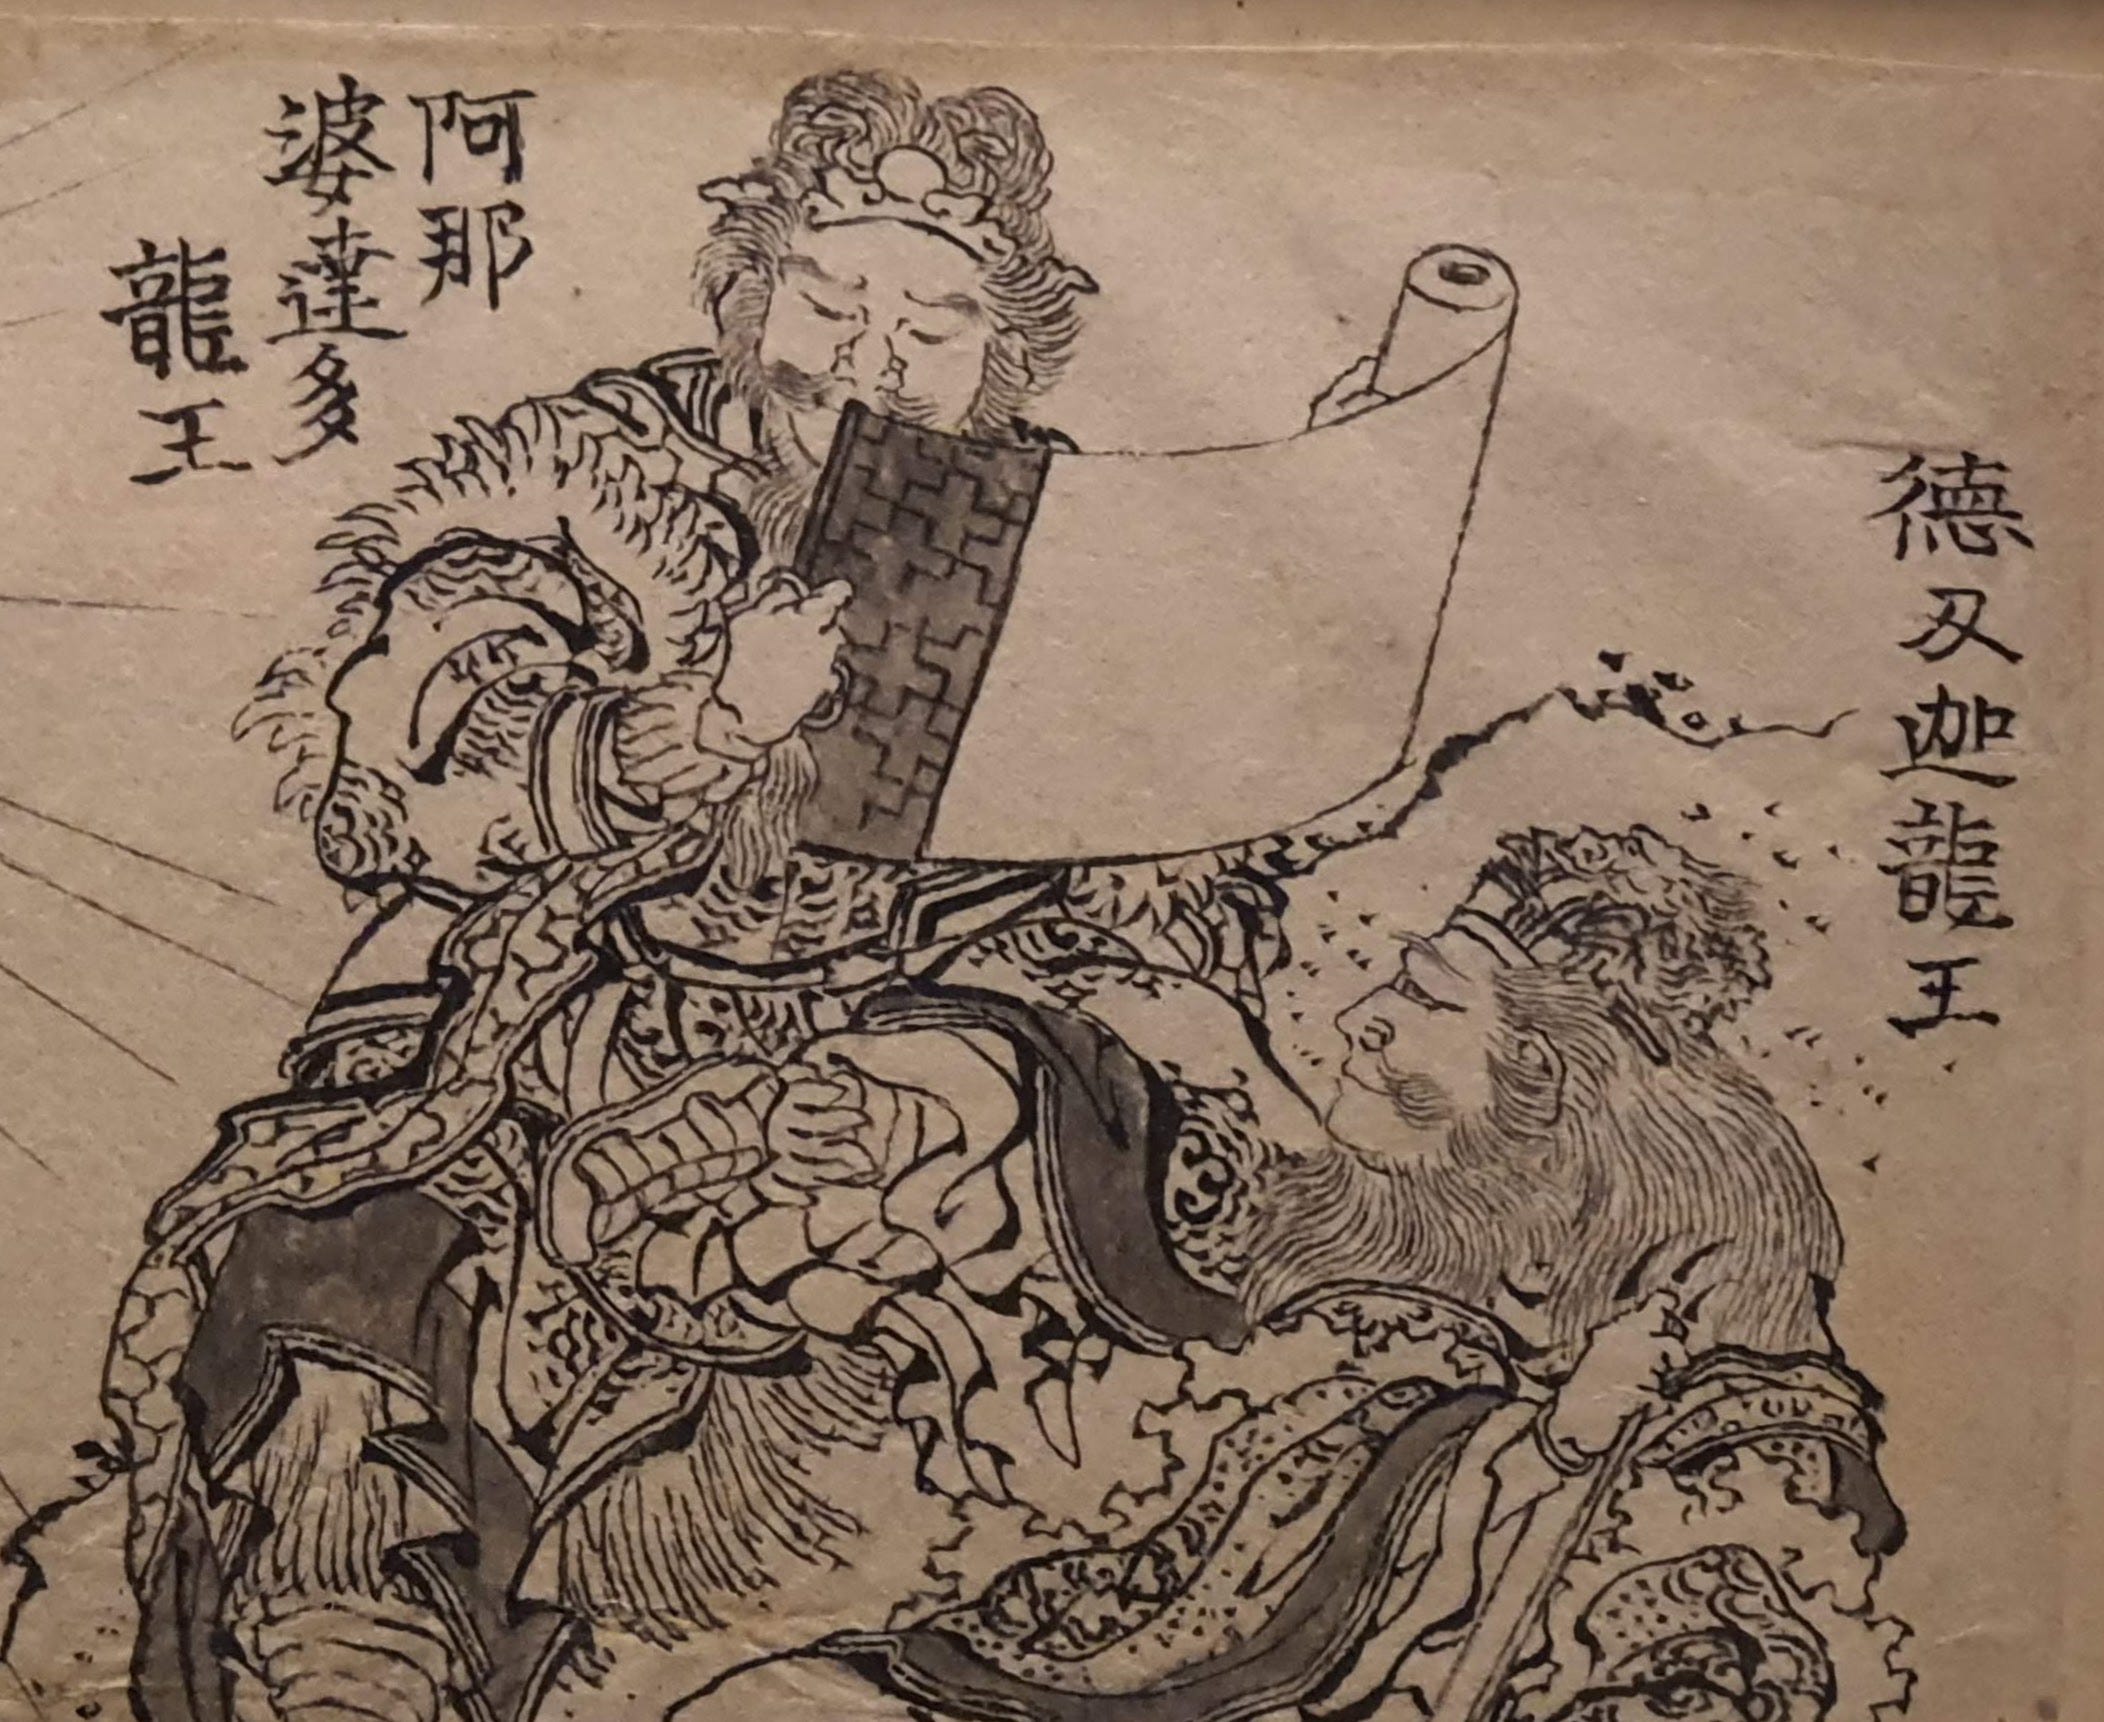 徳叉迦龍王
阿那
婆達多
龍王